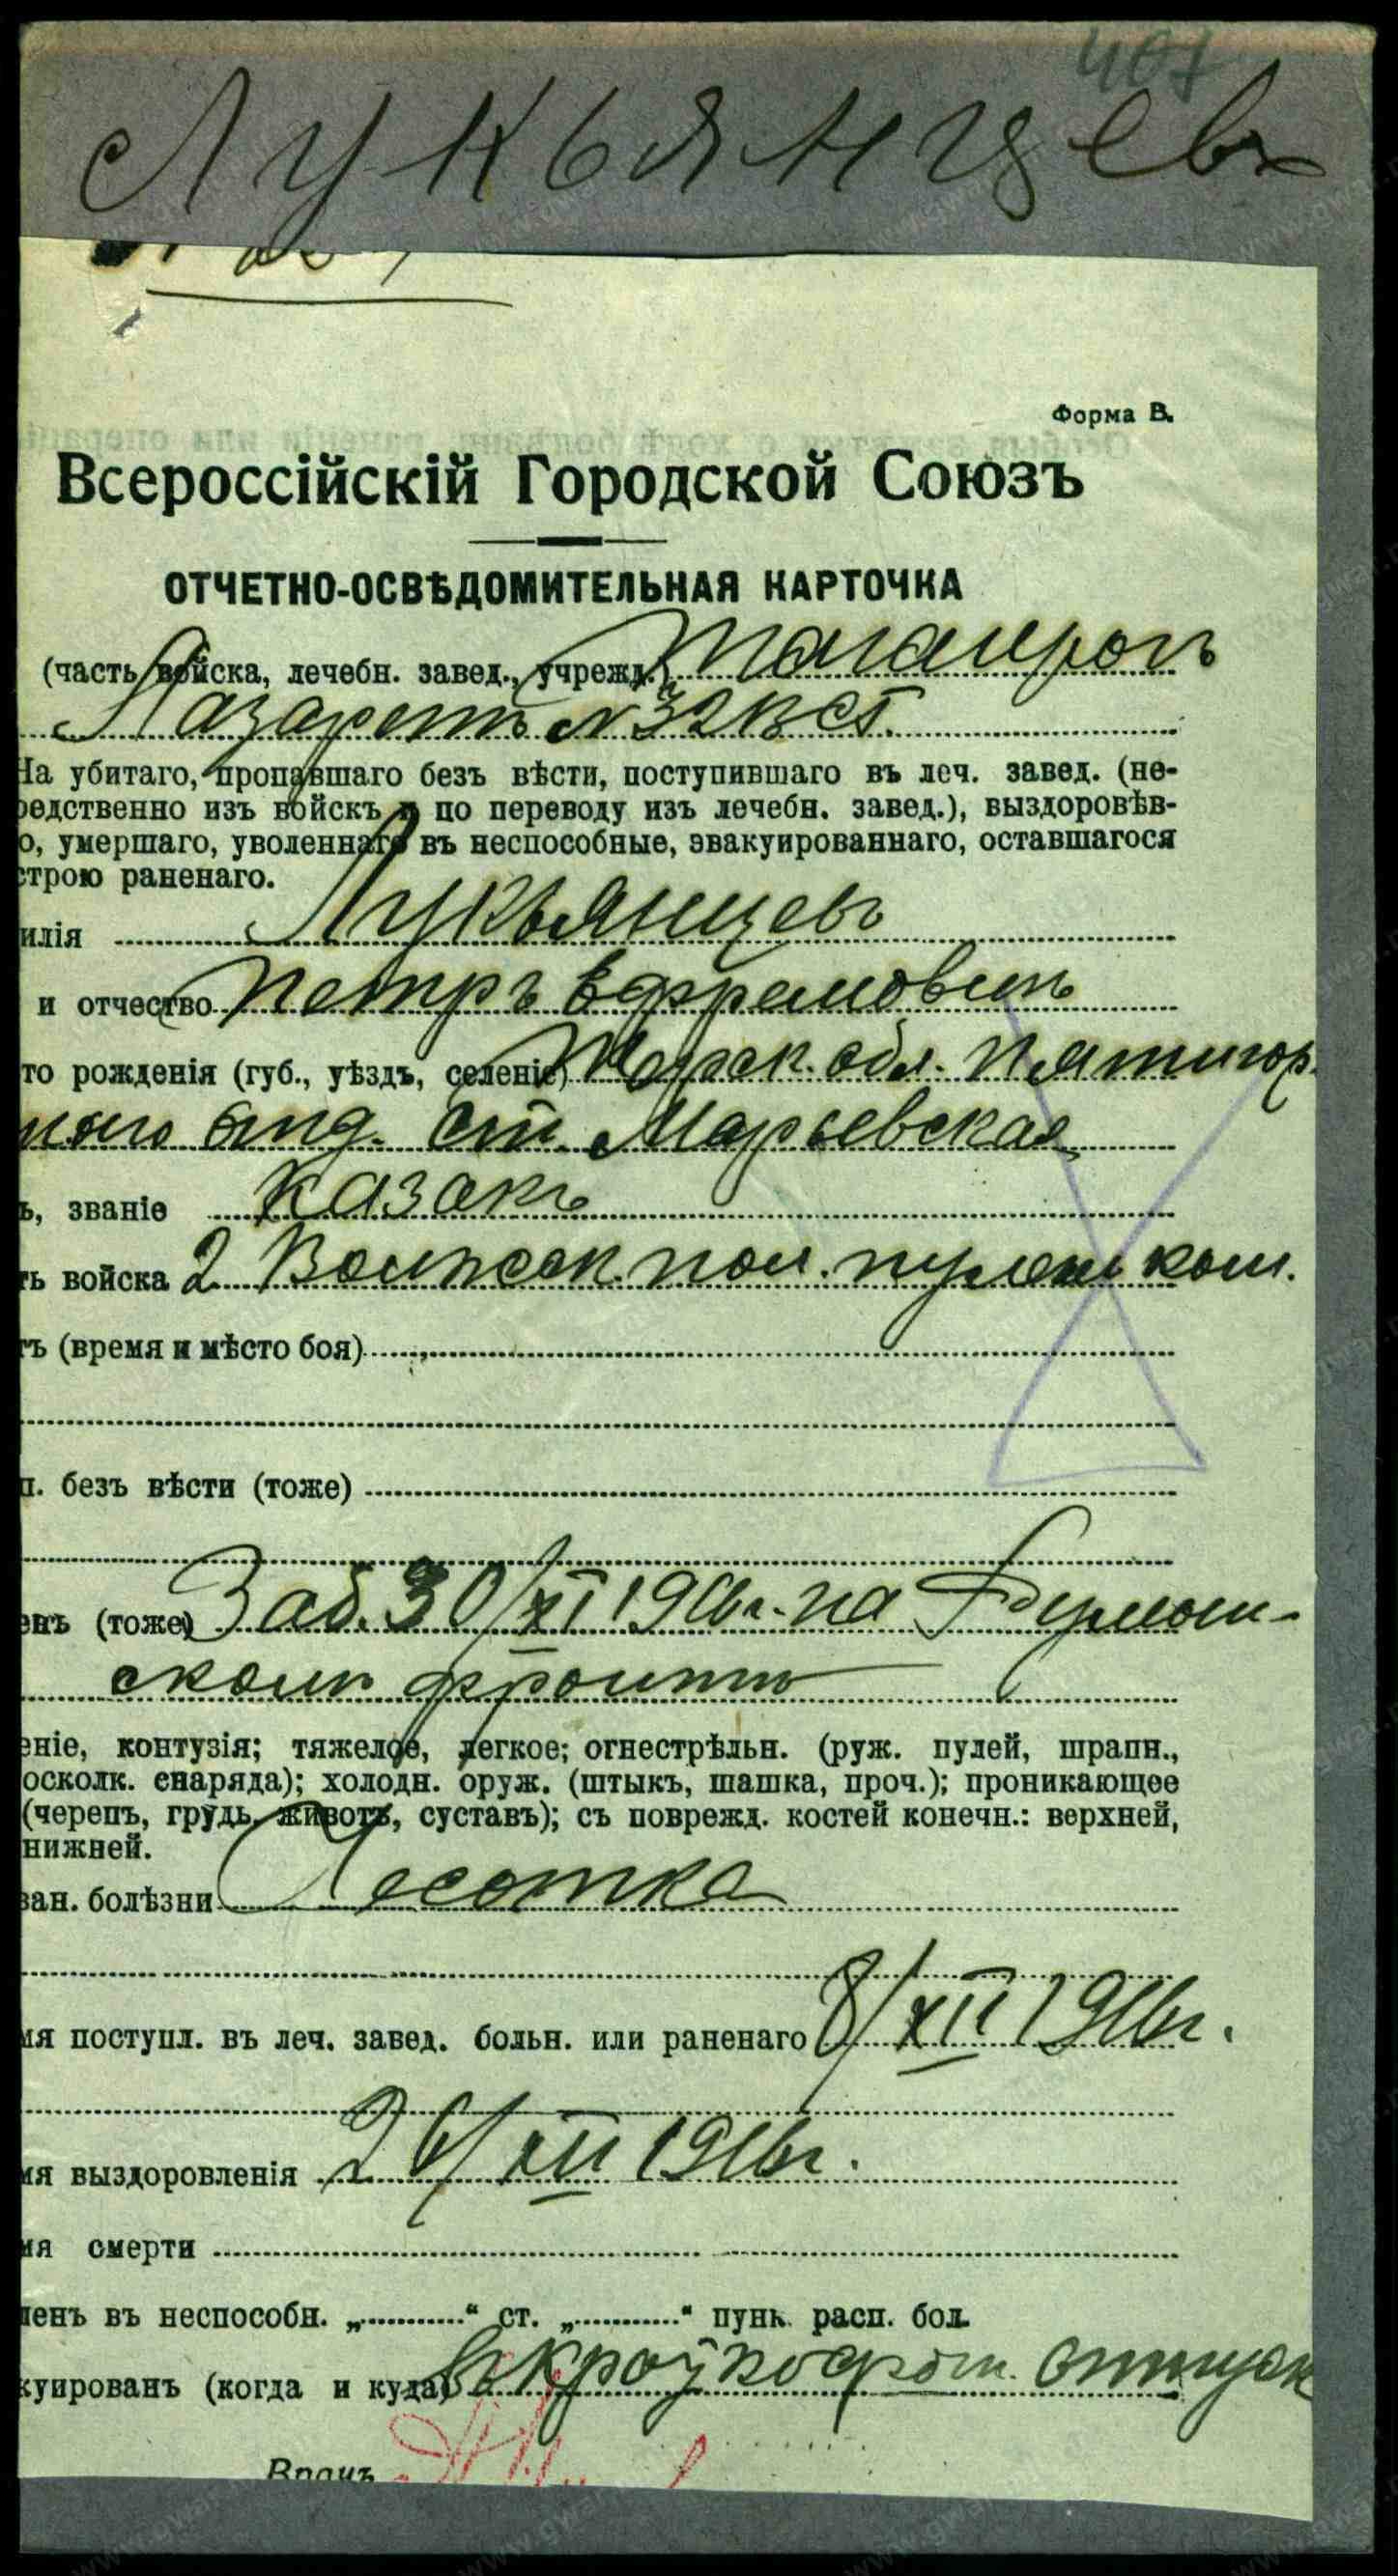 407
Лукьянцевъ
Форма В.
Всероссійскій Городской Союзъ
ОТЧЕТНО-ОСВѢДОМИТЕЛЬНАЯ КАРТОЧКА
(часть войска, лечебн. завед., учрежд.) Таганрогъ
Лазаретъ № 32 В С Г.
На убитаго, пропавшаго безъ вѣсти, поступившаго въ леч. завед. (не-
редственно изъ войскъ и по переводу изъ лечебн. завед.), выздоровѣв-
о, умершаго, уволеннаго въ неспособные, эвакуированнаго, оставшагося
строю раненаго.
илія Лукьянцевъ
и отчество Петръ Ефремовичъ
то рожденія (губ., уѣздъ, селеніе) Терск. обл. Пятигор-
отд. ст. Марьевская
ь, званіе казакъ
ть войска 2 Волжск. пол. пулем ком.
тъ (время и мѣсто боя)
п. безъ вѣсти (тоже)
енъ (тоже) Заб. 30/XI 1916 г. на Румын-
скомъ фронтѣ
еніе, контузія; тяжелое, легкое; огнестрѣльн. (руж. пулей, шрапн.,
осколк. снаряда); холодн. оруж. (штыкъ, шашка, проч.); проникающее
(черепъ, грудь, животъ, суставъ); съ поврежд. костей конечн.: верхней,
нижней.
зан. болѣзни Чесотка
мя поступл. въ леч. завед. больн. или раненаго 8/XII 1916 г.
мя выздоровленія XII 1916 г.
мя смерти
ленъ въ неспособн. „ “ ст. „ “ пунк. расп. бол.
куированъ (когда и куда) отпуск
Врачъ